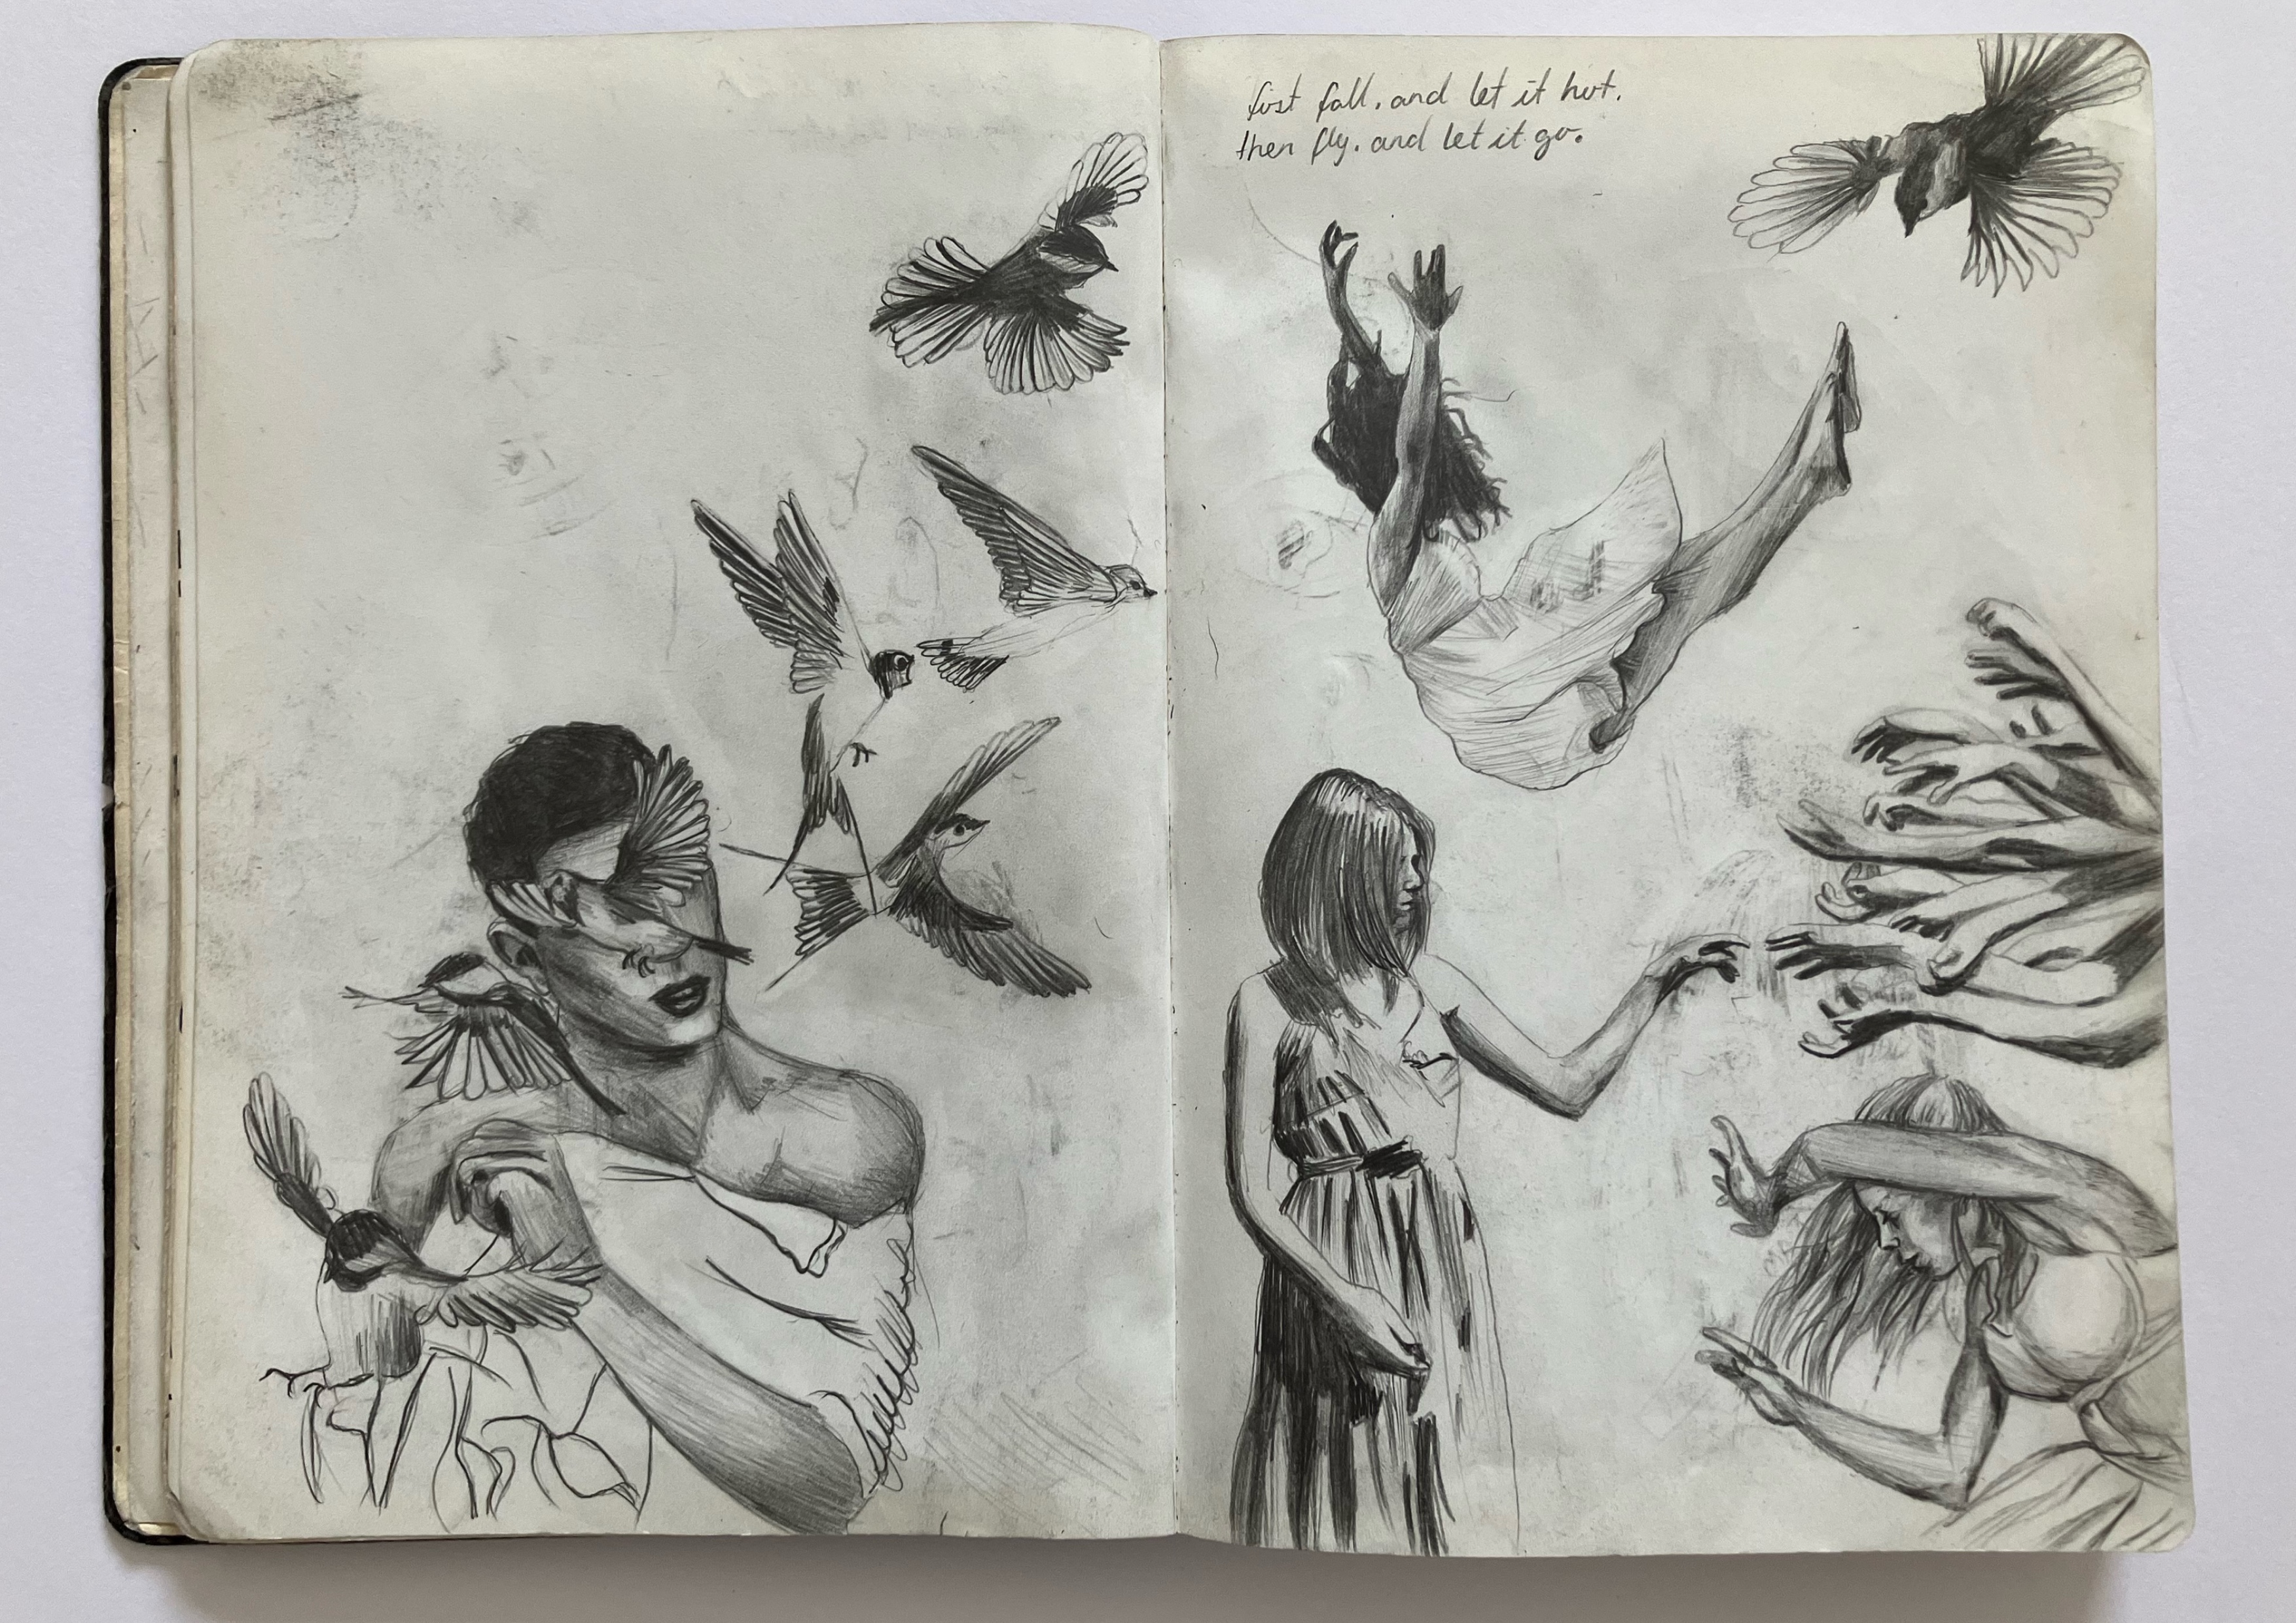 first fall, and let it hurt.
then fly, and let it go.